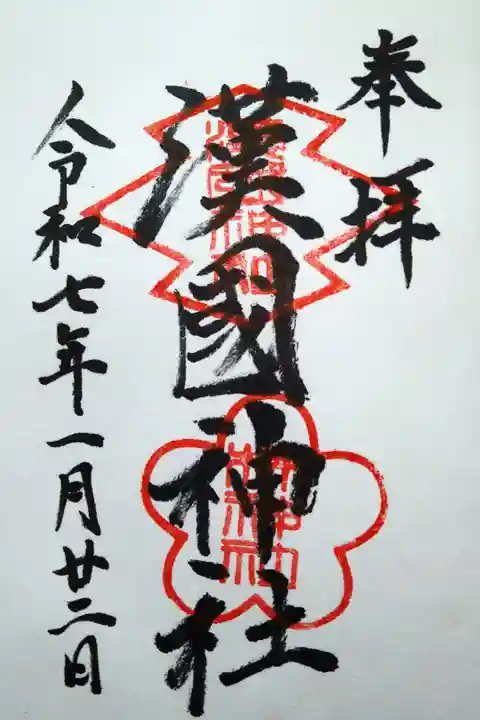 奉拝
漢國神社
令和七年一月廿二日